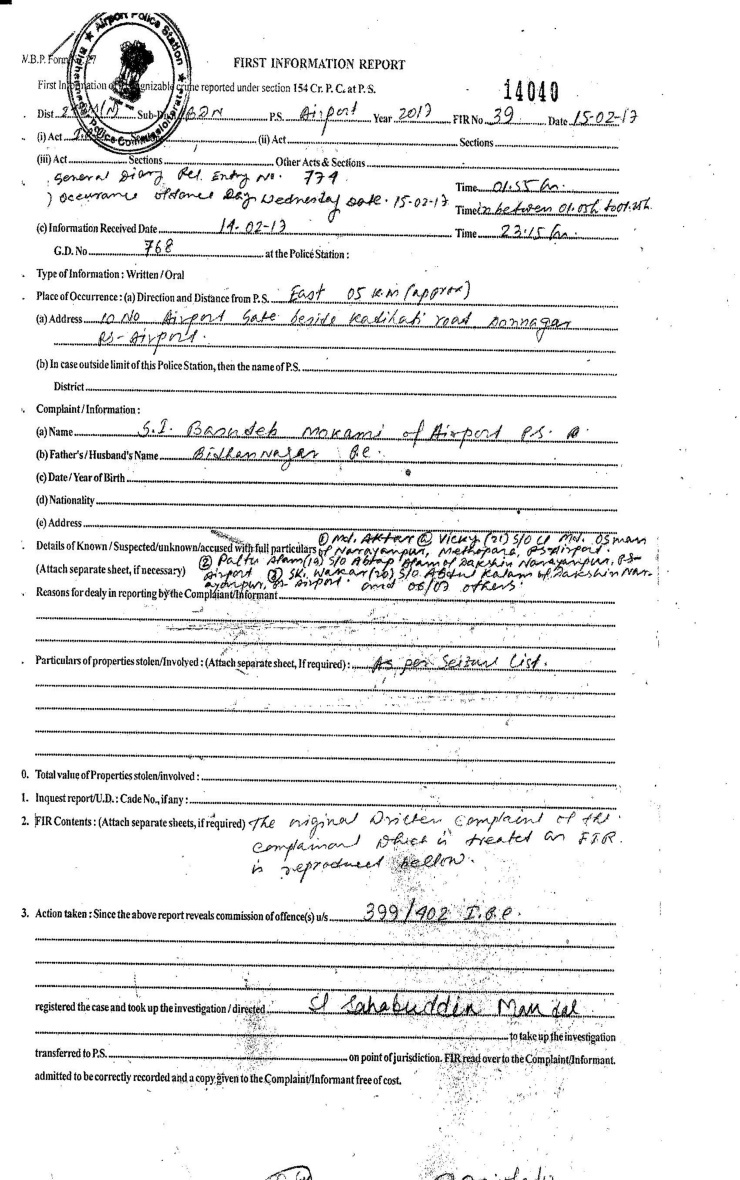 Airport Police Station
W.B.P. Form
FIRST INFORMATION REPORT
First Information of cognizable crime reported under section 154 Cr. P. C. at P. S.
14040
Dist Sub-Div BDN P.S. Airport Year 2017 FIR No 39 Date 15-02-17
(i) Act (ii) Act Sections
(iii) Act Sections Other Acts & Sections
General Diary Ref. Entry No. 774 Time 01.55 hr.
) Occurance of dance Day Wednesday Date. 15-02-17 Time in between 01.05h to 01.25h
(c) Information Received Date 14-02-17 Time 23.15 hr.
G.D. No 768 at the Police Station :
Type of Information : Written / Oral
Place of Occurrence : (a) Direction and Distance from P.S. East 05 k.m (approx)
(a) Address 10 No Airport Gate beside Kadihati road
PS-Airport.
(b) In case outside limit of this Police Station, then the name of P.S.
District
Complaint / Information :
(a) Name S.I. Basudeb Mokami of Airport P.S.
(b) Father's / Husband's Name Bidhannagar
(c) Date / Year of Birth
(d) Nationality
(e) Address
① Md. Aktar @ Vicky (21) S/O Md. Osman
Details of Known / Suspected/unknown/accused with full particulars of Narayanpur, Methopara, PS-Airport.
② Paltu Alam (19) S/O Abtap Alam of Dakshin Narayanpur, PS-
(Attach separate sheet, if necessary) Airport ③ SK. Wakar (20) S/O Abdul Kalam of Dakshin Nar-
ayanpur, PS Airport. and 06/07 others.
Reasons for dealy in reporting by the Complaiant/Informant
Particulars of properties stolen/Involved : (Attach separate sheet, If required) : As per Seizure List.
0. Total value of Properties stolen/involved :
1. Inquest report/U.D. : Cade No., if any :
2. FIR Contents : (Attach separate sheets, if required) The original Written Complaint of the
complainant which is treated as FIR.
is reproduced bellow.
3. Action taken : Since the above report reveals commission of offence(s) u/s 399/402 I.P.C.
registered the case and took up the investigation / directed SI Sahabuddin Mandal
to take up the investigation
transferred to P.S. on point of jurisdiction. FIR read over to the Complaint/Informant.
admitted to be correctly recorded and a copy given to the Complaint/Informant free of cost.